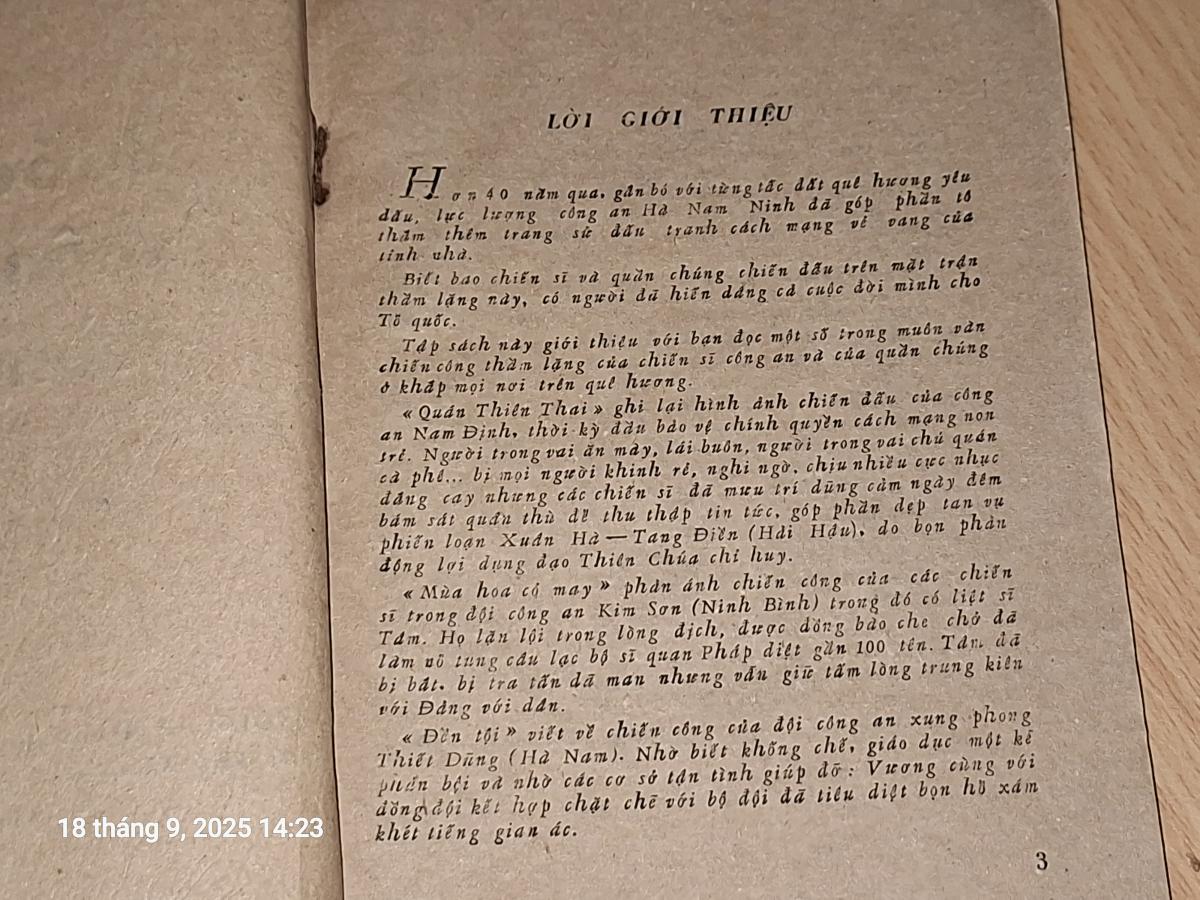 LỜI GIỚI THIỆU
Hơn 40 năm qua, gắn bó với từng tấc đất quê hương yêu
dấu, lực lượng công an Hà Nam Ninh đã góp phần tô
thắm thêm trang sử đấu tranh cách mạng vẻ vang của
tỉnh nhà.
Biết bao chiến sĩ và quần chúng chiến đấu trên mặt trận
thầm lặng này, có người đã hiến dâng cả cuộc đời mình cho
Tổ quốc.
Tập sách này giới thiệu với bạn đọc một số trong muôn vàn
chiến công thầm lặng của chiến sĩ công an và của quần chúng
ở khắp mọi nơi trên quê hương.
« Quán Thiên Thai » ghi lại hình ảnh chiến đấu của công
an Nam Định, thời kỳ đầu bảo vệ chính quyền cách mạng non
trẻ. Người trong vai ăn mày, lái buôn, người trong vai chủ quán
cà phê... bị mọi người khinh rẻ, nghi ngờ, chịu nhiều cực nhục
đắng cay nhưng các chiến sĩ đã mưu trí dũng cảm ngày đêm
bám sát quân thù để thu thập tin tức, góp phần dẹp tan vụ
phiến loạn Xuân Hà — Tang Điền (Hải Hậu), do bọn phản
động lợi dụng đạo Thiên Chúa chỉ huy.
« Mùa hoa cỏ may » phản ánh chiến công của các chiến
sĩ trong đội công an Kim Sơn (Ninh Bình) trong đó có liệt sĩ
Tám. Họ lặn lội trong lòng địch, được đồng bào che chở đã
làm nổ tung câu lạc bộ sĩ quan Pháp diệt gần 100 tên. Tám đã
bị bắt, bị tra tấn dã man nhưng vẫn giữ tấm lòng trung kiên
với Đảng với dân.
« Đền tội » viết về chiến công của đội công an xung phong
Thiết Dũng (Hà Nam). Nhờ biết khống chế, giáo dục một kẻ
phản bội và nhờ các cơ sở tận tình giúp đỡ : Vương cùng với
đồng đội kết hợp chặt chẽ với bộ đội đã tiêu diệt bọn hổ xám
khét tiếng gian ác.
3
18 tháng 9, 2025 14:23